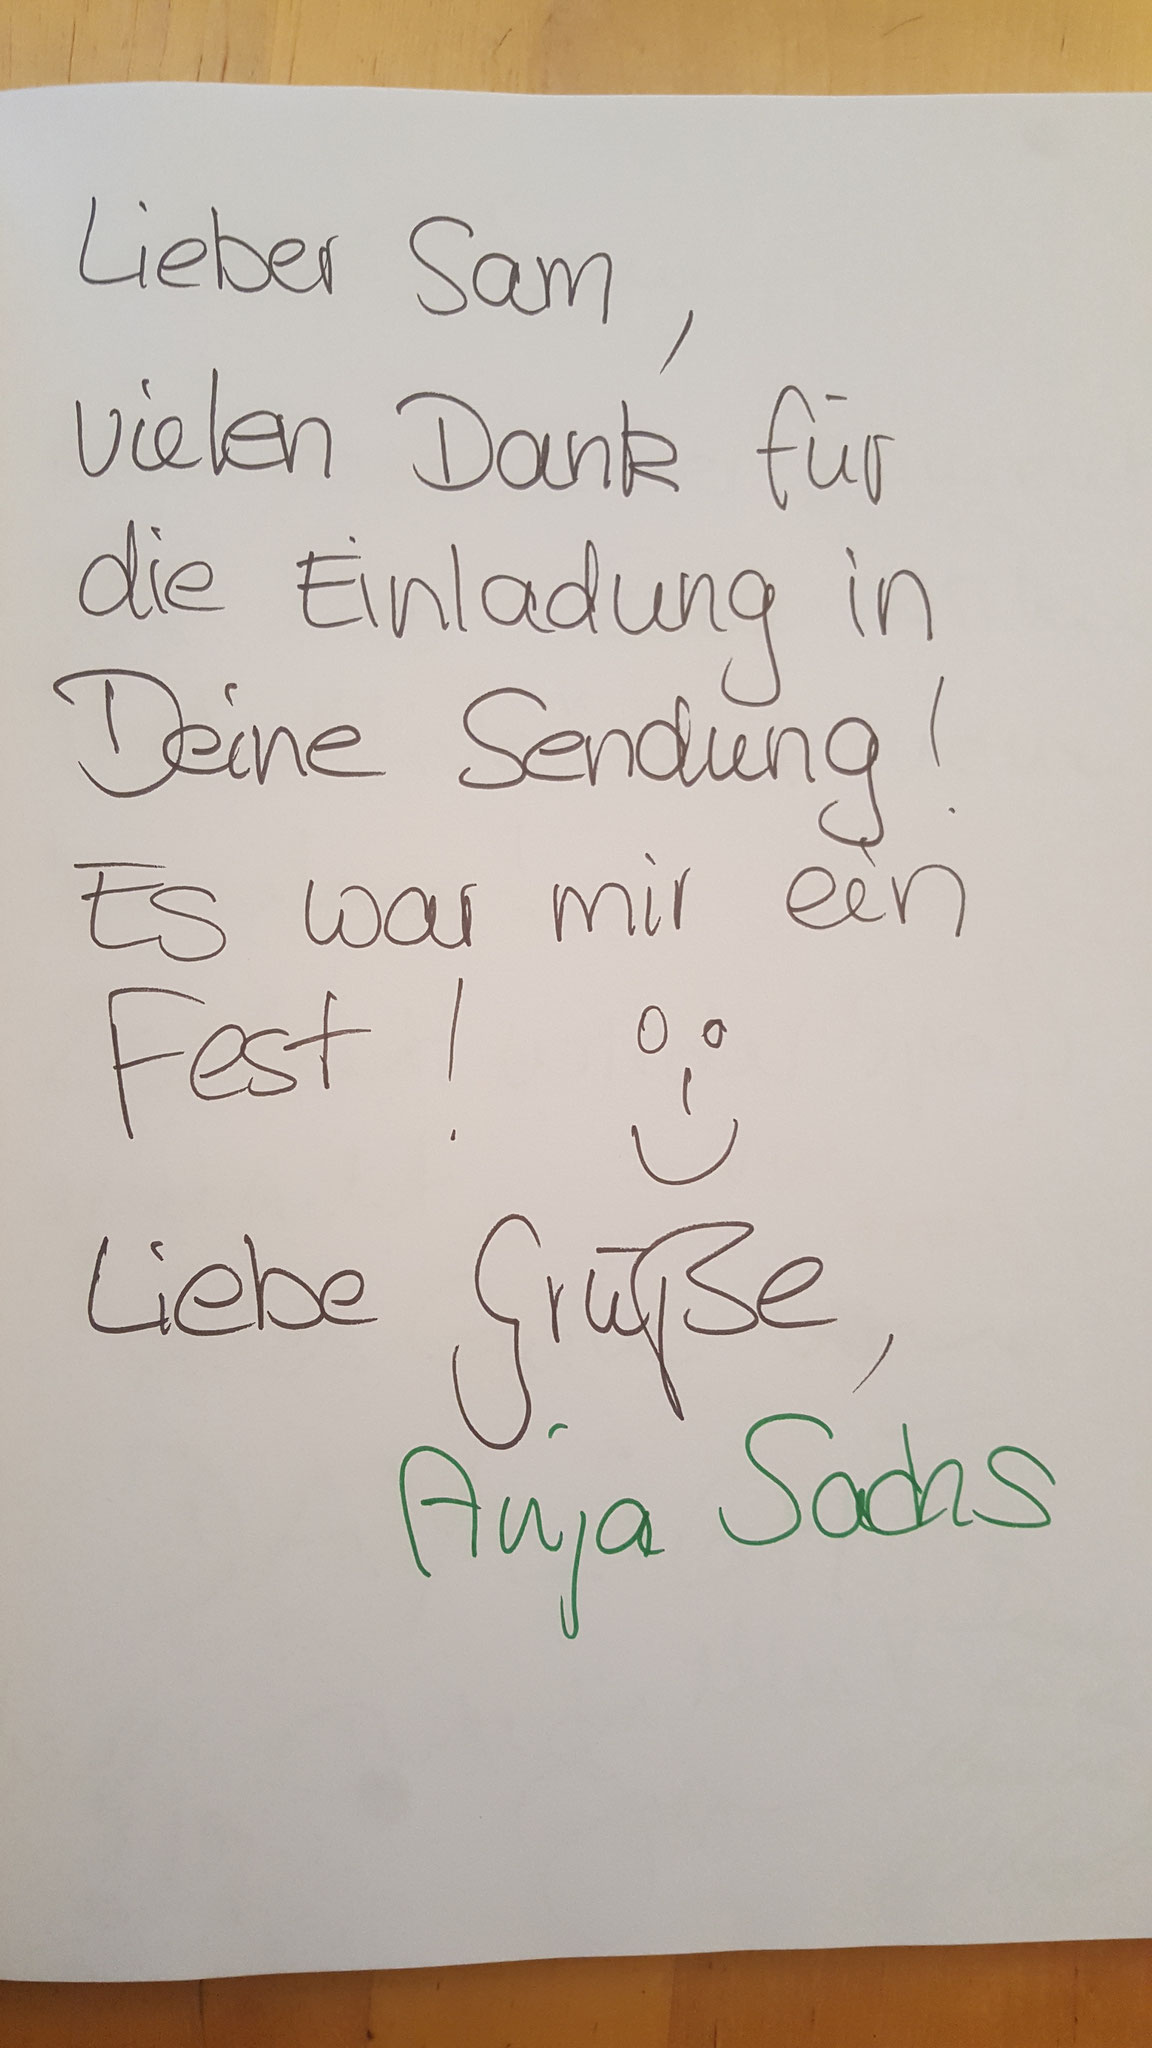 Lieber Sam,
vielen Dank für
die Einladung in
Deine Sendung!
Es war mir ein
Fest!
Liebe Grüße,
Anja Sachs